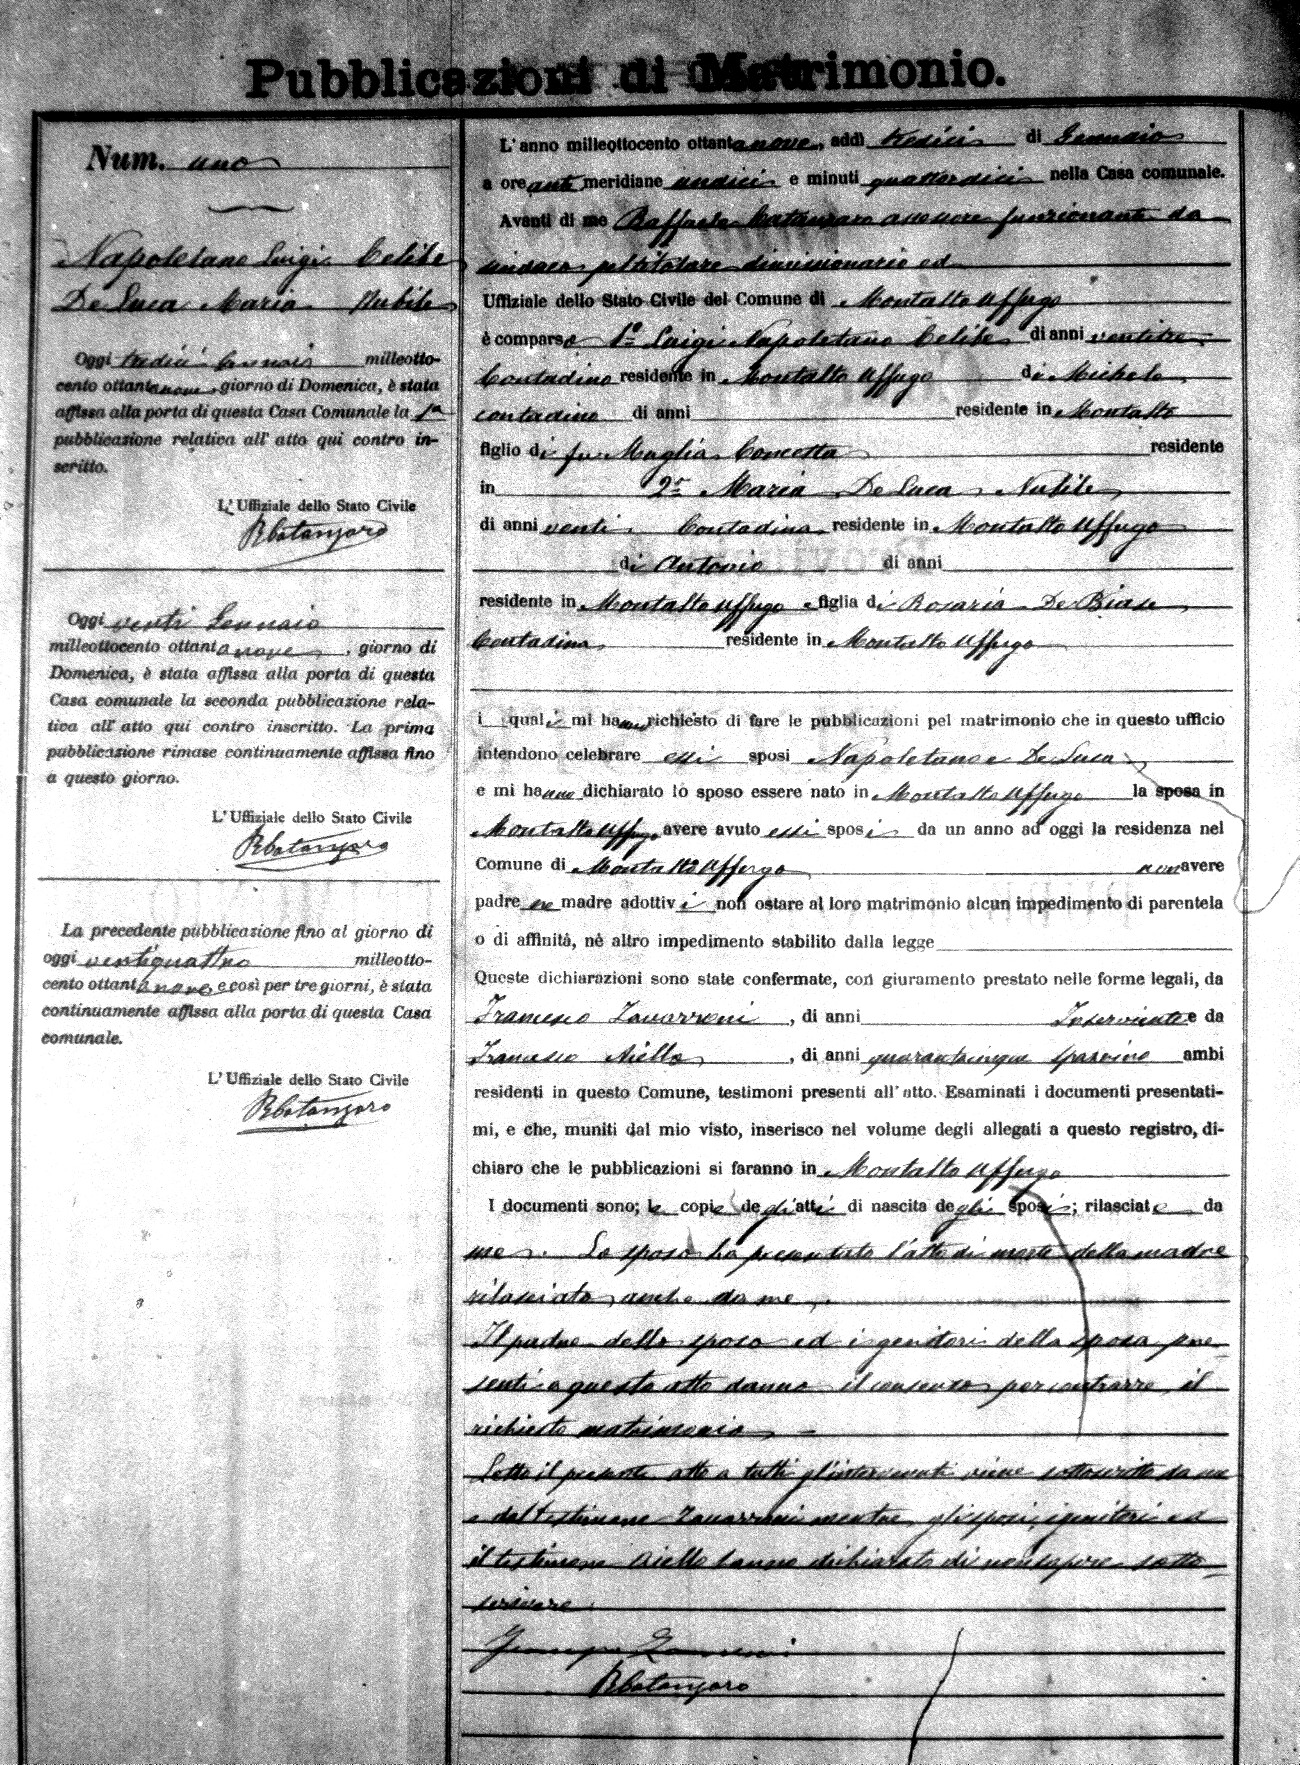 Pubblicazioni di Matrimonio.
Num. uno
Napoletano Luigi Celibe
De Luca Maria Nubile
Oggi tredici Gennaio milleotto-
cento ottantanove, giorno di Domenica, è stata
affissa alla porta di questa Casa Comunale la 1ª
pubblicazione relativa all' atto qui contro in-
scritto.
L'Uffiziale dello Stato Civile
RCatanzaro
Oggi venti Gennaio
milleottocento ottantanove, giorno di
Domenica, è stata affissa alla porta di questa
Casa comunale la seconda pubblicazione rela-
tiva all' atto qui contro inscritto. La prima
pubblicazione rimase continuamente affissa fino
a questo giorno.
L'Uffiziale dello Stato Civile
RCatanzaro
La precedente pubblicazione fino al giorno di
oggi ventiquattro milleotto-
cento ottantanove e così per tre giorni, è stata
continuamente affissa alla porta di questa Casa
comunale.
L'Uffiziale dello Stato Civile
RCatanzaro
L'anno milleottocento ottantanove, addì tredici di Gennaio
a ore anti meridiane undici e minuti quattordici nella Casa comunale.
Avanti di me Raffaele Catanzaro assessore funzionante da
sindaco pel titolare dimissionario ed
Uffiziale dello Stato Civile del Comune di Montalto Uffugo
è comparso 1º Luigi Napoletano Celibe di anni ventitre
Contadino residente in Montalto Uffugo di Michele
contadino di anni residente in Montalto
figlio di fu Maglia Concetta residente
in 2º Maria De Luca Nubile
di anni venti Contadina residente in Montalto Uffugo
di Antonio di anni
residente in Montalto Uffugo e figlia di Rosaria De Biase
Contadina residente in Montalto Uffugo
i quali mi hanno richiesto di fare le pubblicazioni pel matrimonio che in questo ufficio
intendono celebrare essi sposi Napoletano e De Luca
e mi hanno dichiarato lo sposo essere nato in Montalto Uffugo la sposa in
Montalto Uffugo avere avuto essi sposi da un anno ad oggi la residenza nel
Comune di Montalto Uffugo non avere
padre ne madre adottivi non ostare al loro matrimonio alcun impedimento di parentela
o di affinità, nè altro impedimento stabilito dalla legge
Queste dichiarazioni sono state confermate, con giuramento prestato nelle forme legali, da
Francesco Zavarroni, di anni Inserviente e da
Francesco Aiello, di anni quarantacinque ambi
residenti in questo Comune, testimoni presenti all'atto. Esaminati i documenti presentati-
mi, e che, muniti dal mio visto, inserisco nel volume degli allegati a questo registro, di-
chiaro che le pubblicazioni si faranno in Montalto Uffugo
I documenti sono; le copie degli atti di nascita degli sposi; rilasciate da
me. Lo sposo ha presentato l'atto di morte della madre
rilasciato anche da me.
Il padre dello sposo ed i genitori della sposa pre-
senti a questo atto danno il consenso per contrarre il
richiesto matrimonio
Letto il presente atto a tutti gl'intervenuti viene sottoscritto da me
e dal testimone Zavarroni mentre gli sposi, i genitori ed
il testimone Aiello hanno dichiarato di non sapere sotto-
scrivere
Zavarroni
RCatanzaro